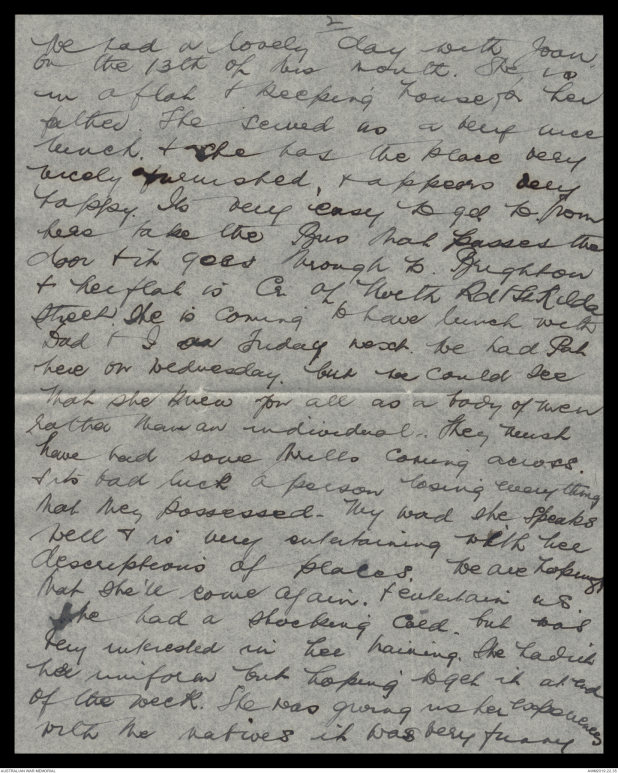 2
We had a lovely day with Joan
on the 13th of this month. She is
in a flat & keeping house for her
father. She served us a very nice
lunch, & she has the place very
nicely furnished, & appears very
happy. Its very easy to get to from
here take the Bus that passes the
door & it goes through to Brighton
& her flat is Cr of North Rd & St Kilda
Street. She is coming to have lunch with
Dad & I on Friday next. We had Pat
here on Wednesday. but we could see
that she knew you all as a body of men
rather than an individual. They must
have had some thrills coming across.
& its bad luck a person losing everything
that they possessed - My word she speaks
well & is very entertaining with her
descriptions of places. We are hoping
that she'll come again. & entertain us.
She had a shocking cold. but was
very interested in her training. She hadn't
her uniform but hoping to get it at end
of the week. She was giving us her experiences
with the natives it was very funny
AUSTRALIAN WAR MEMORIAL